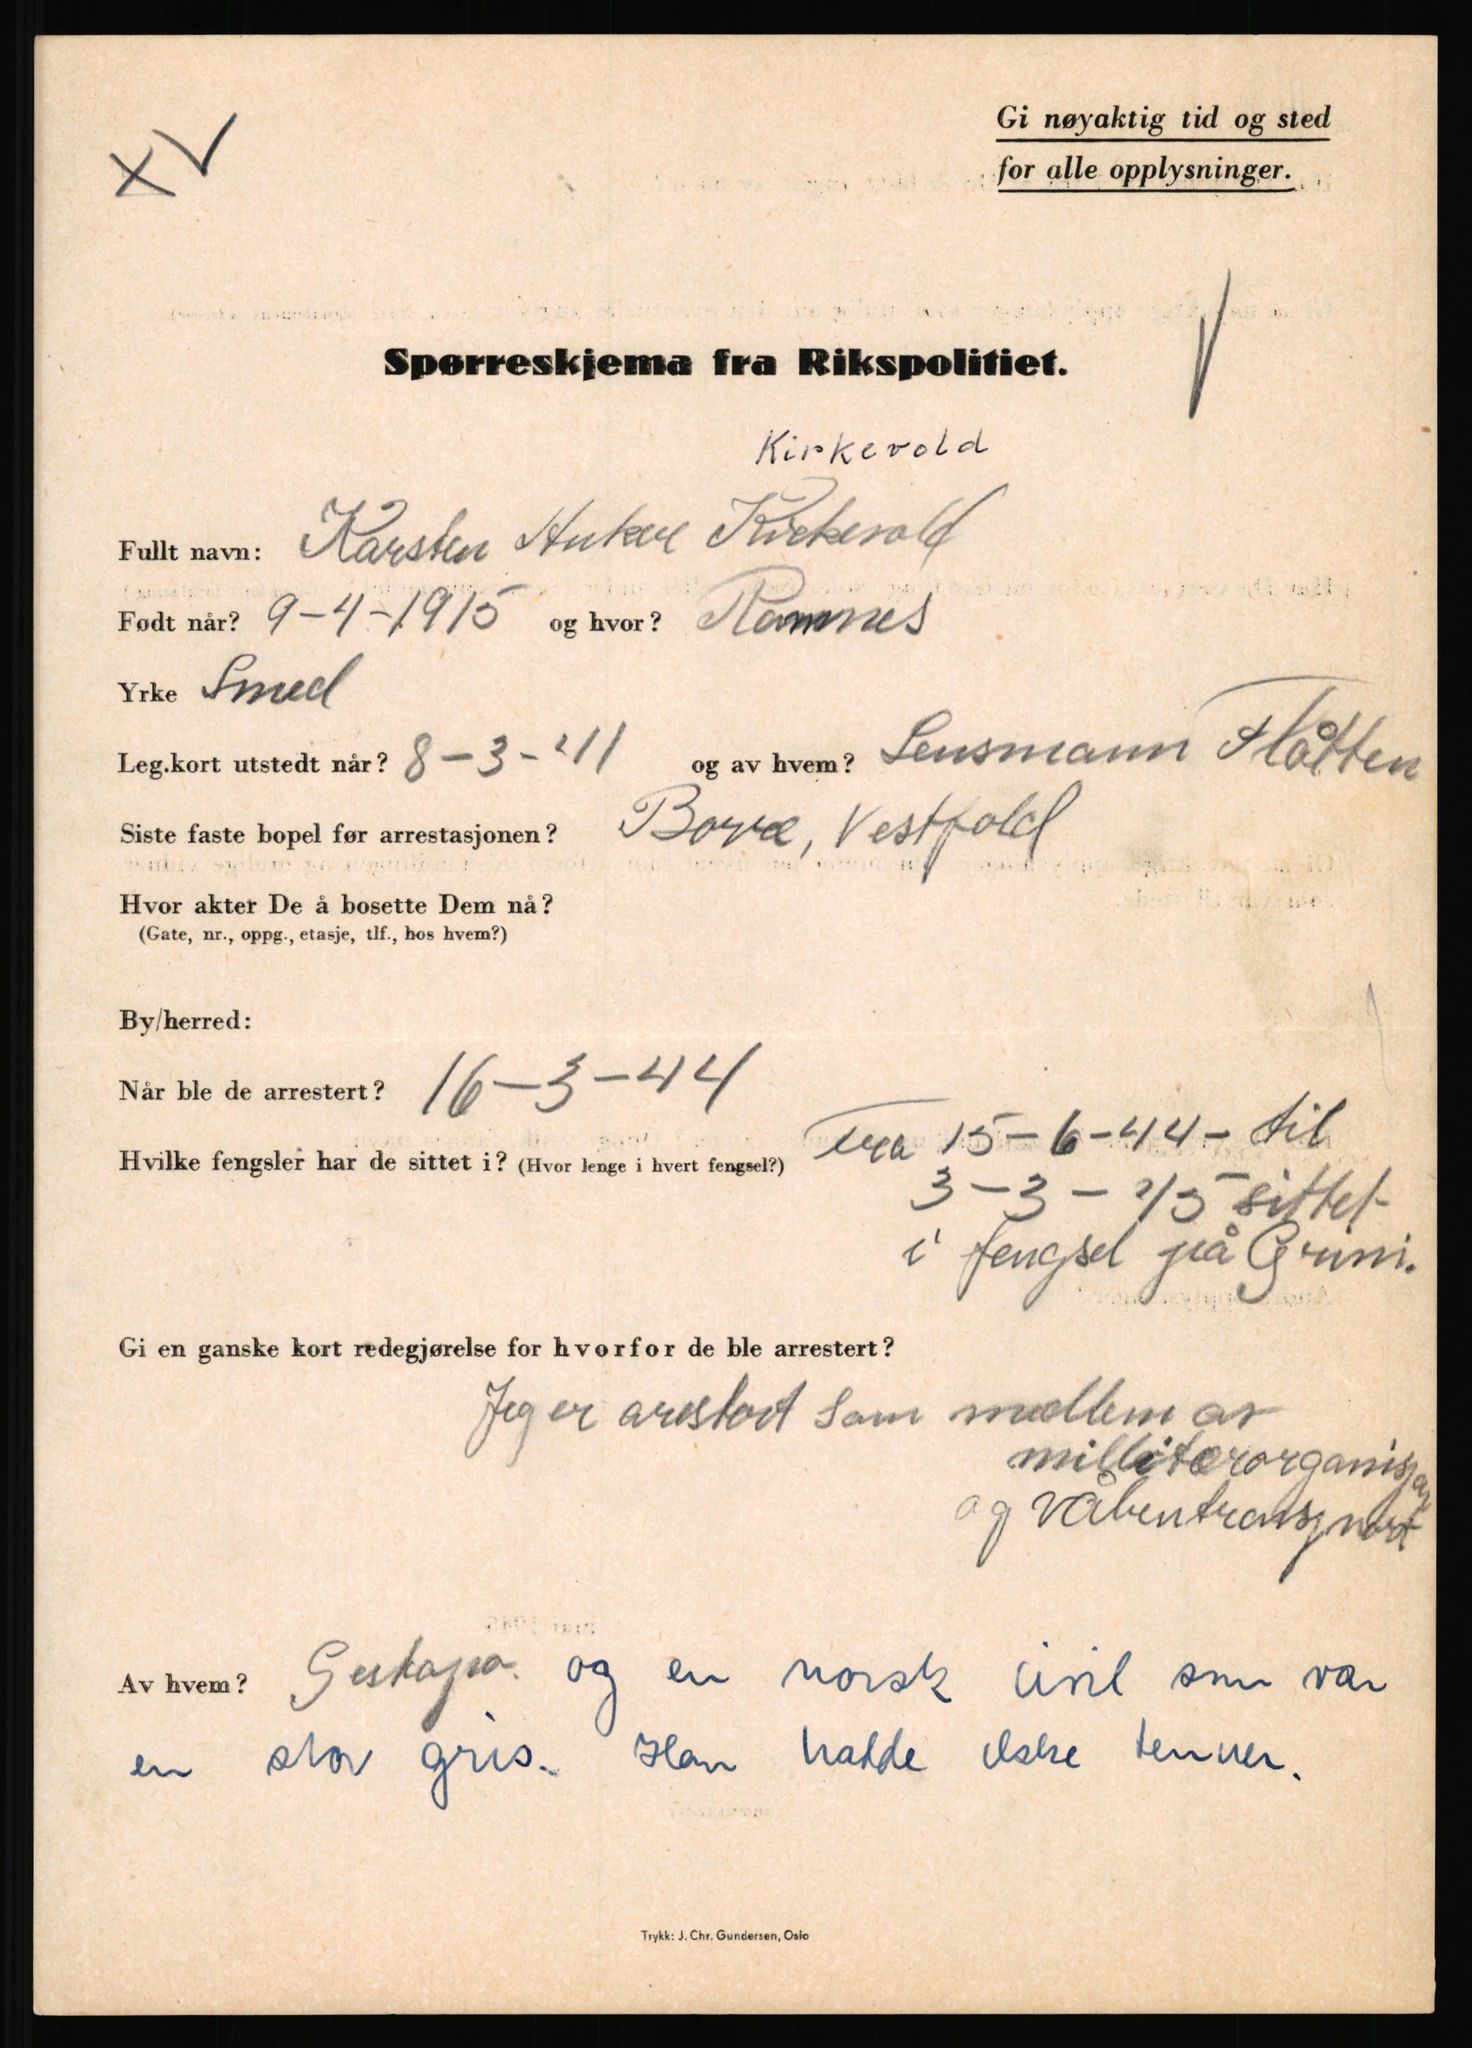 XV
Gi nøyaktig tid og sted
for alle opplysninger.
Spørreskjema fra Rikspolitiet.
Kirkevold
Fullt navn: Karsten Anker Kirkevold
Født når? 9-4-1915 og hvor? Ramnes
Yrke Smed
Leg.kort utstedt når? 8-3-41 og av hvem? Lensmann Flåtten
Siste faste bopel før arrestasjonen? Borre, Vestfold
Hvor akter De å bosette Dem nå?
(Gate, nr., oppg., etasje, tlf., hos hvem?)
By/herred:
Når ble de arrestert? 16-3-44
Hvilke fengsler har de sittet i? (Hvor lenge i hvert fengsel?) Fra 15-6-44- til
3-3-45 sittet
i fengsel på Grini.
Gi en ganske kort redegjørelse for hvorfor de ble arrestert?
Jeg er arestert som medlem av
millitærorganisjon
og våbentransport
Av hvem? Gestapo. og en norsk civil som var
en stor gris. Han hadde ikke tenner.
Trykk: J. Chr. Gundersen, Oslo